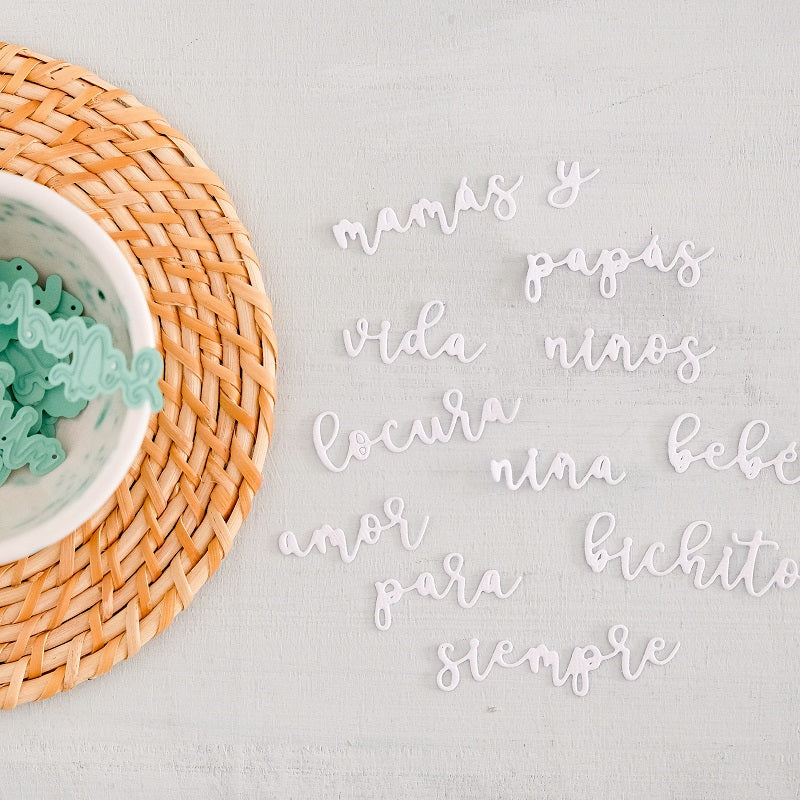 mamás y
papás
vida
niños
locura
niña
bebé
amor
bichito
para
siempre